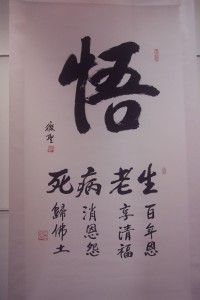 悟
生 百年恩
老 享清福
病 消恩怨
死 歸佛土